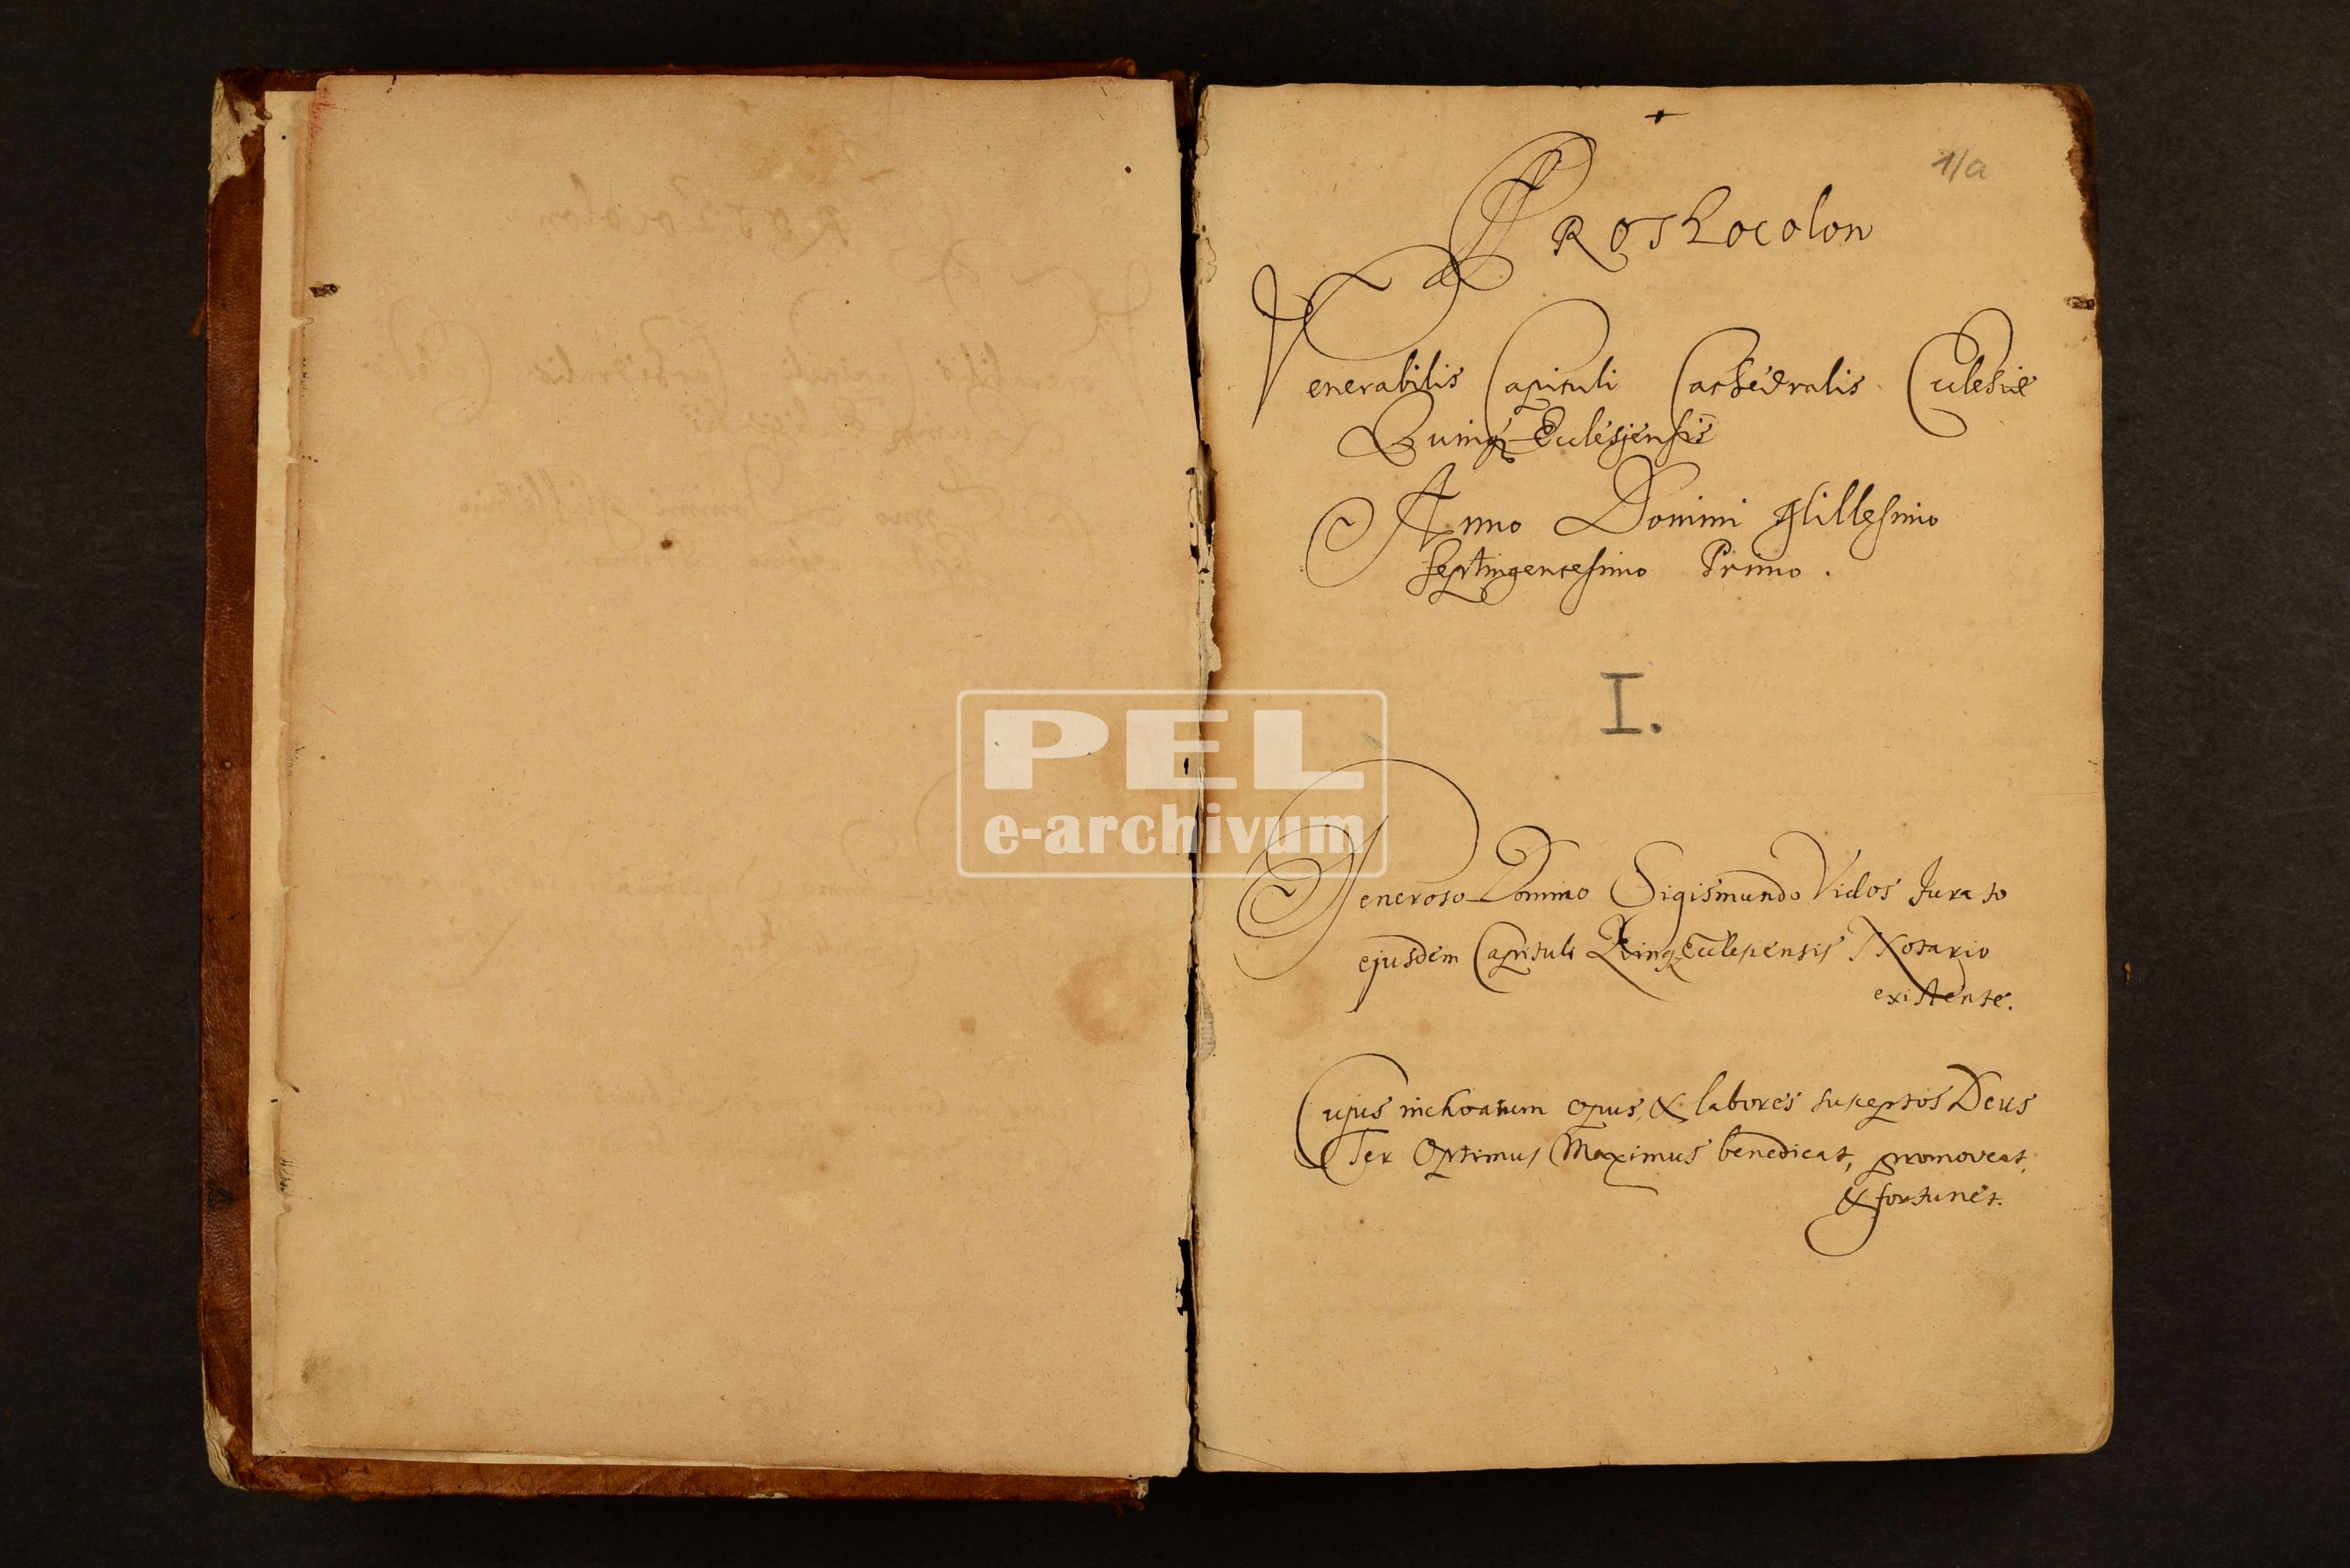 1/a
Prothocolon
Venerabilis Capituli Cathedralis Ecclesiae
Quinq Ecclesjensis
Anno Domini Millesimo
Septingentesimo Primo.
I.
PEL
e-archivum
Generoso Domino Sigismundo Vidos Jurato
ejusdem Capituli QuinqEcclesiensis Notario
existente.
Cujus inchoatum opus, & labores suceptos Deus
Ter Optimus Maximus benedicat, promoveat,
& fortunet.